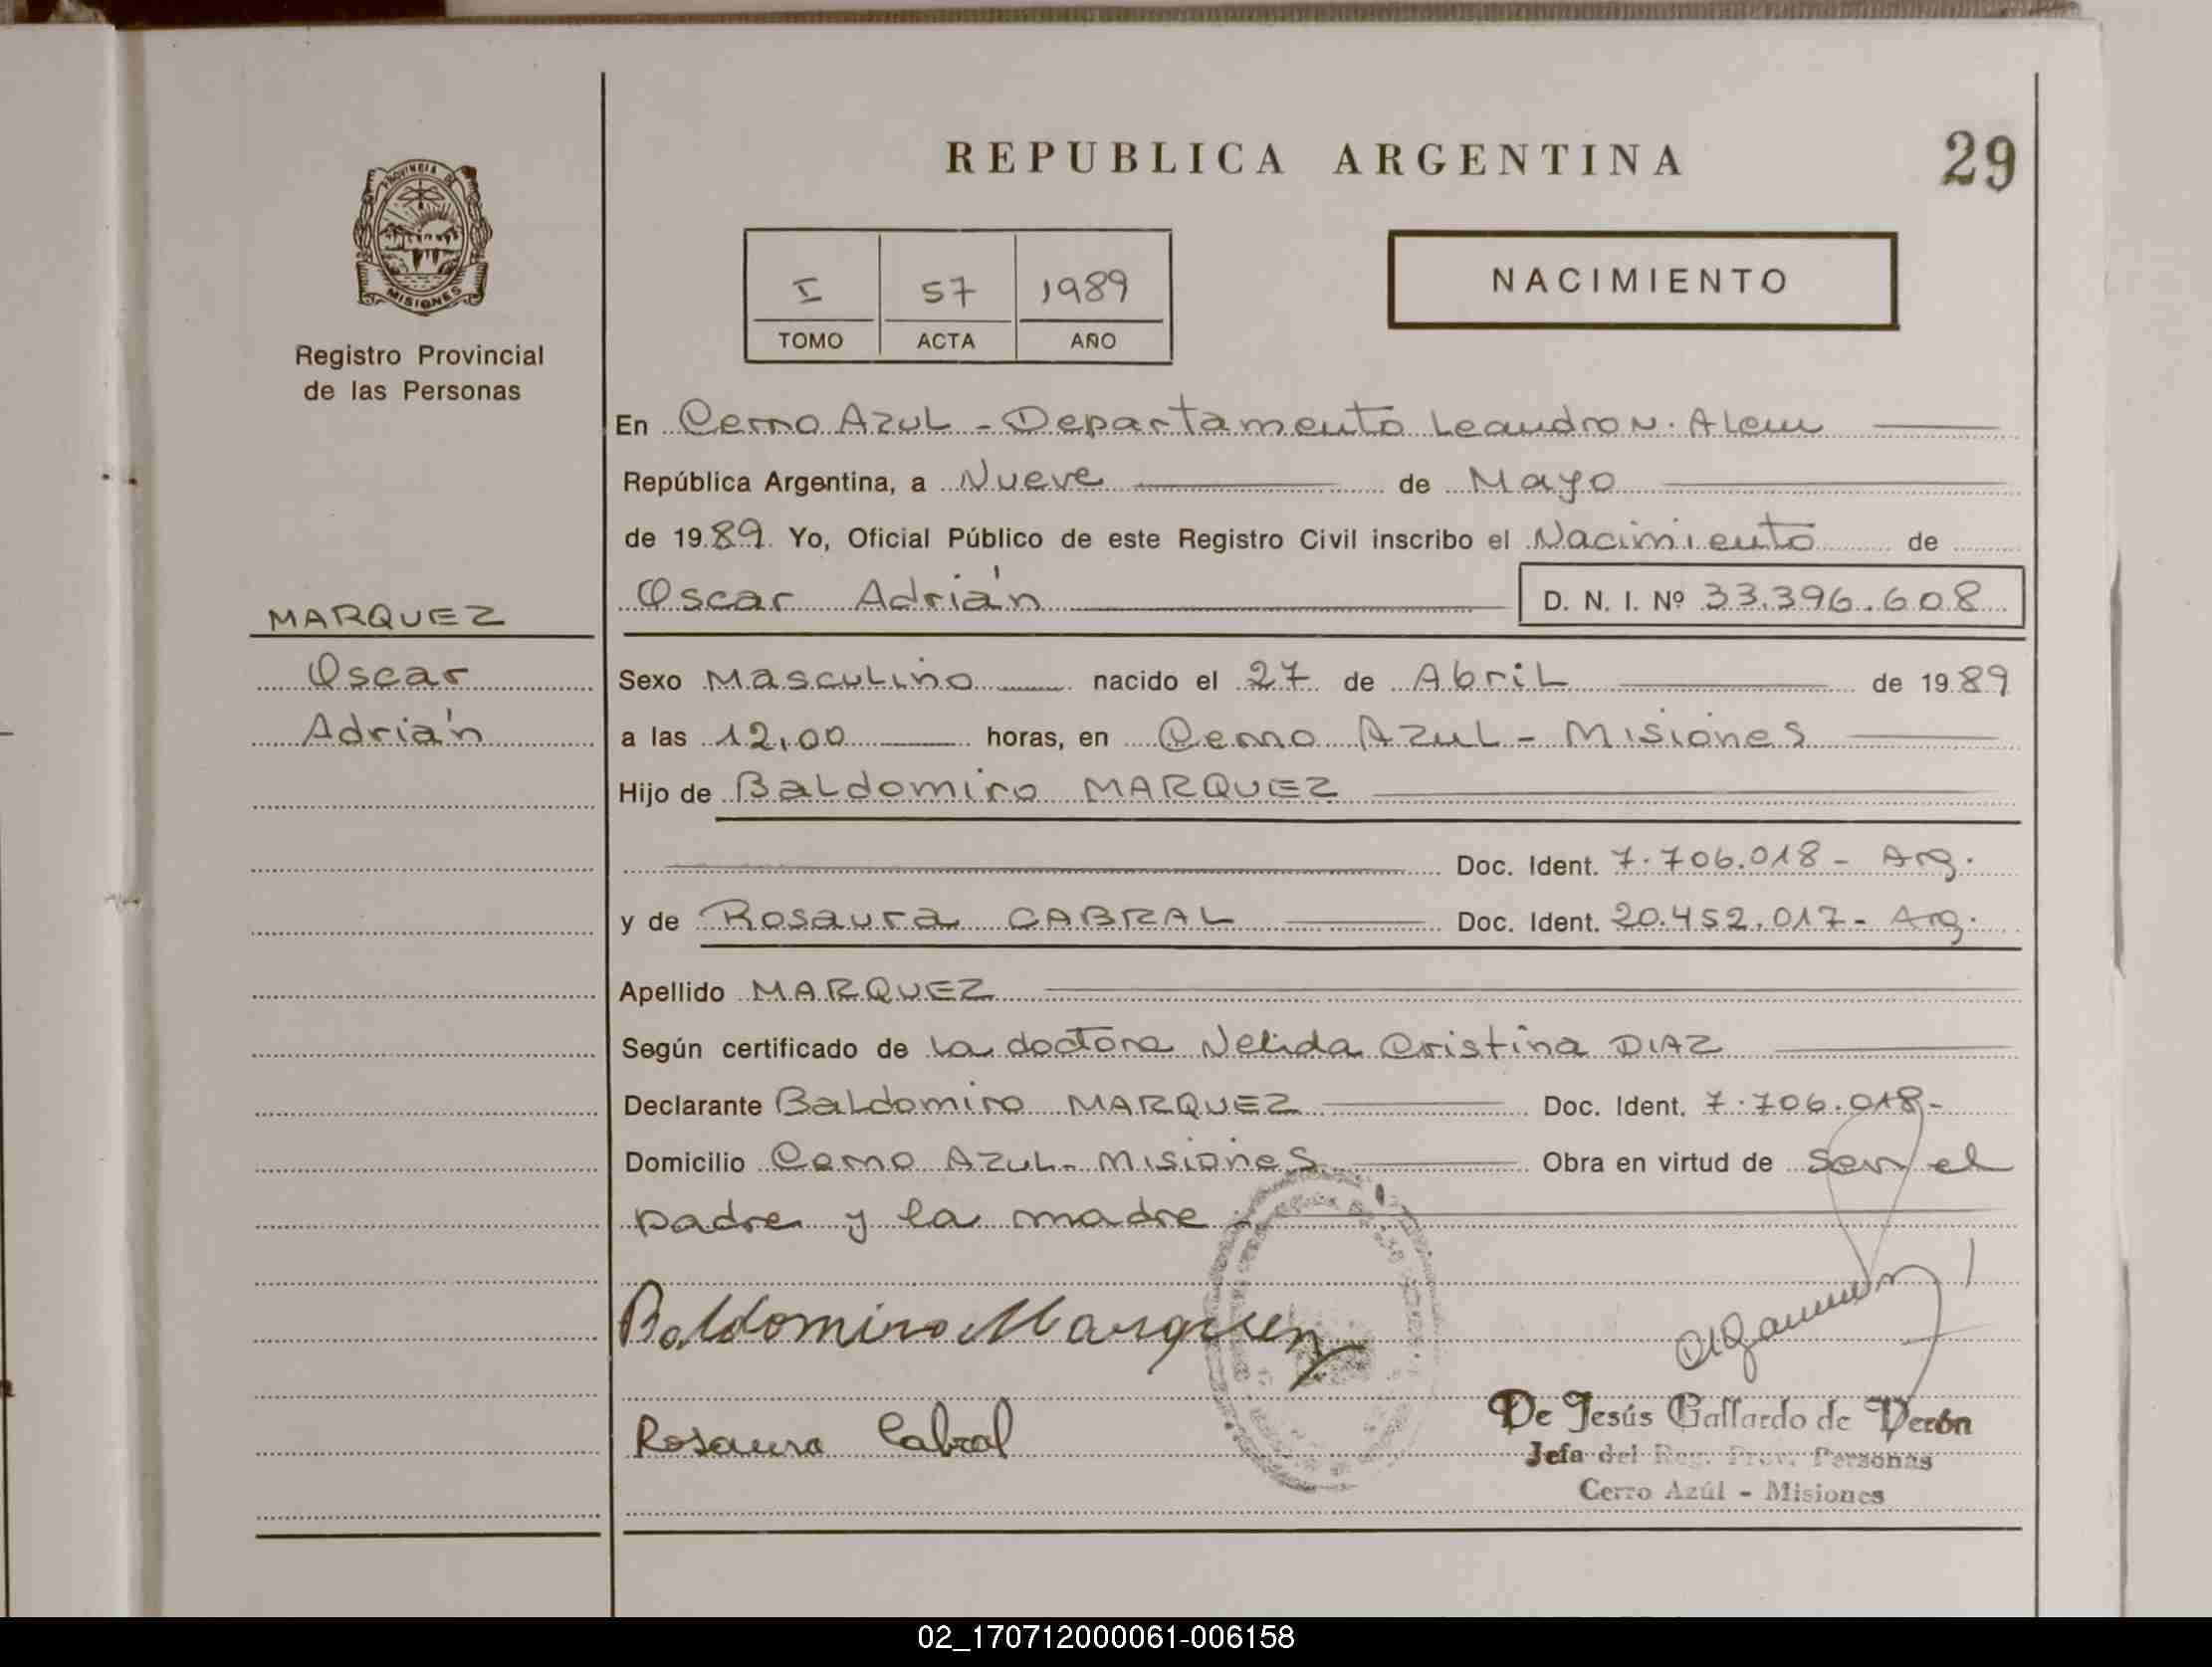 REPUBLICA ARGENTINA
29
PROVINCIA DE
MISIONES
Registro Provincial
de las Personas
I 57 1989
TOMO ACTA AÑO
NACIMIENTO
En Cerro Azul - Departamento Leandro N. Alem
República Argentina, a Nueve de Mayo
de 1989 Yo, Oficial Público de este Registro Civil inscribo el Nacimiento de
Oscar Adrián D. N. I. Nº 33.396.608
MARQUEZ
Oscar
Adrián
Sexo Masculino nacido el 27 de Abril de 1989
a las 12,00 horas, en Cerro Azul - Misiones
Hijo de Baldomiro MARQUEZ
Doc. Ident. 7.706.018 - Arg.
y de Rosaura CABRAL Doc. Ident. 20.452.017 - Arg.
Apellido MARQUEZ
Según certificado de la doctora Nelida Cristina DIAZ
Declarante Baldomiro MARQUEZ Doc. Ident. 7.706.018-
Domicilio Cerro Azul - Misiones Obra en virtud de ser el
padre y la madre
Baldomiro Marquez
Rosaura Cabral
De Jesús Gallardo de Verón
Jefa del Reg. Prov. Personas
Cerro Azúl - Misiones
02_170712000061-006158